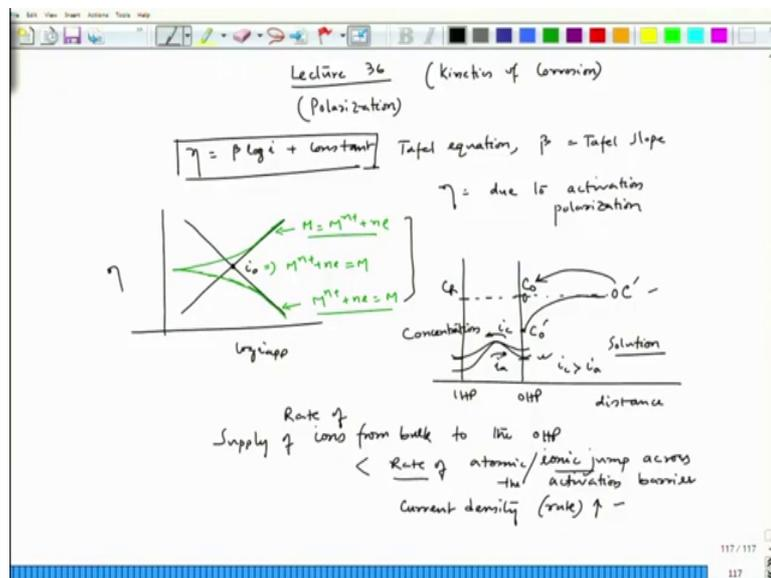 File Edit View Insert Actions Tools Help
Lecture 36 (Kinetics of Corrosion)
(Polarization)
η = β log i + constant Tafel equation, β = Tafel slope
η = due to activation
polarization
M = Mⁿ⁺ + ne
η
i₀ ⇒ Mⁿ⁺ + ne = M
Mⁿ⁺ + ne = M
log iapp
C₀
C'
Concentration
ic
C₀'
Solution
ia
ic > ia
IHP
OHP
distance
Rate of
Supply of ions from bulk to the OHP
< Rate of atomic/ionic jump across
the activation barrier
Current density (rate) ↑ –
117 / 117
117